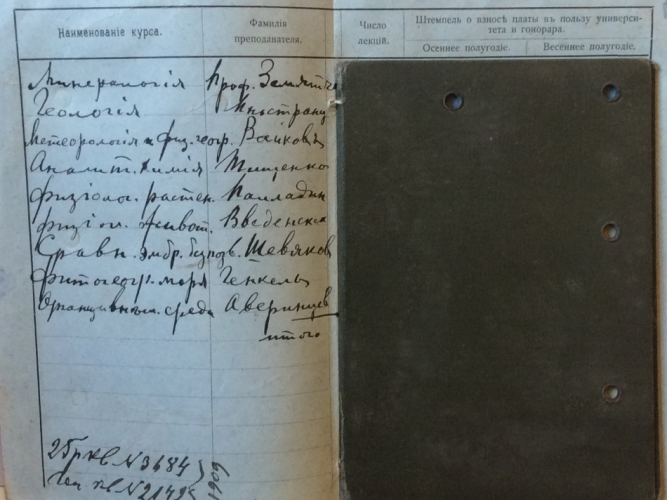 Наименованіе курса. Фамилія преподавателя. Число лекцій. Штемпель о взносѣ платы въ пользу универси-
тета и гонорара.
Осеннее полугодіе. Весеннее полугодіе.
Минералогія Проф. Земятче
Геологія Иностранц
Метеорологія и физ. геогр. Войковъ
Аналит. химія Тищенко
Физіолог. растен. Палладин
Физіол. живот. Введенск
Сравн. эмбр. безпозв. Шевяков
Фитогеогр. моря Генкель
среда Аверинцев
итого
25 р кв № 3684
кв № 2142
1909